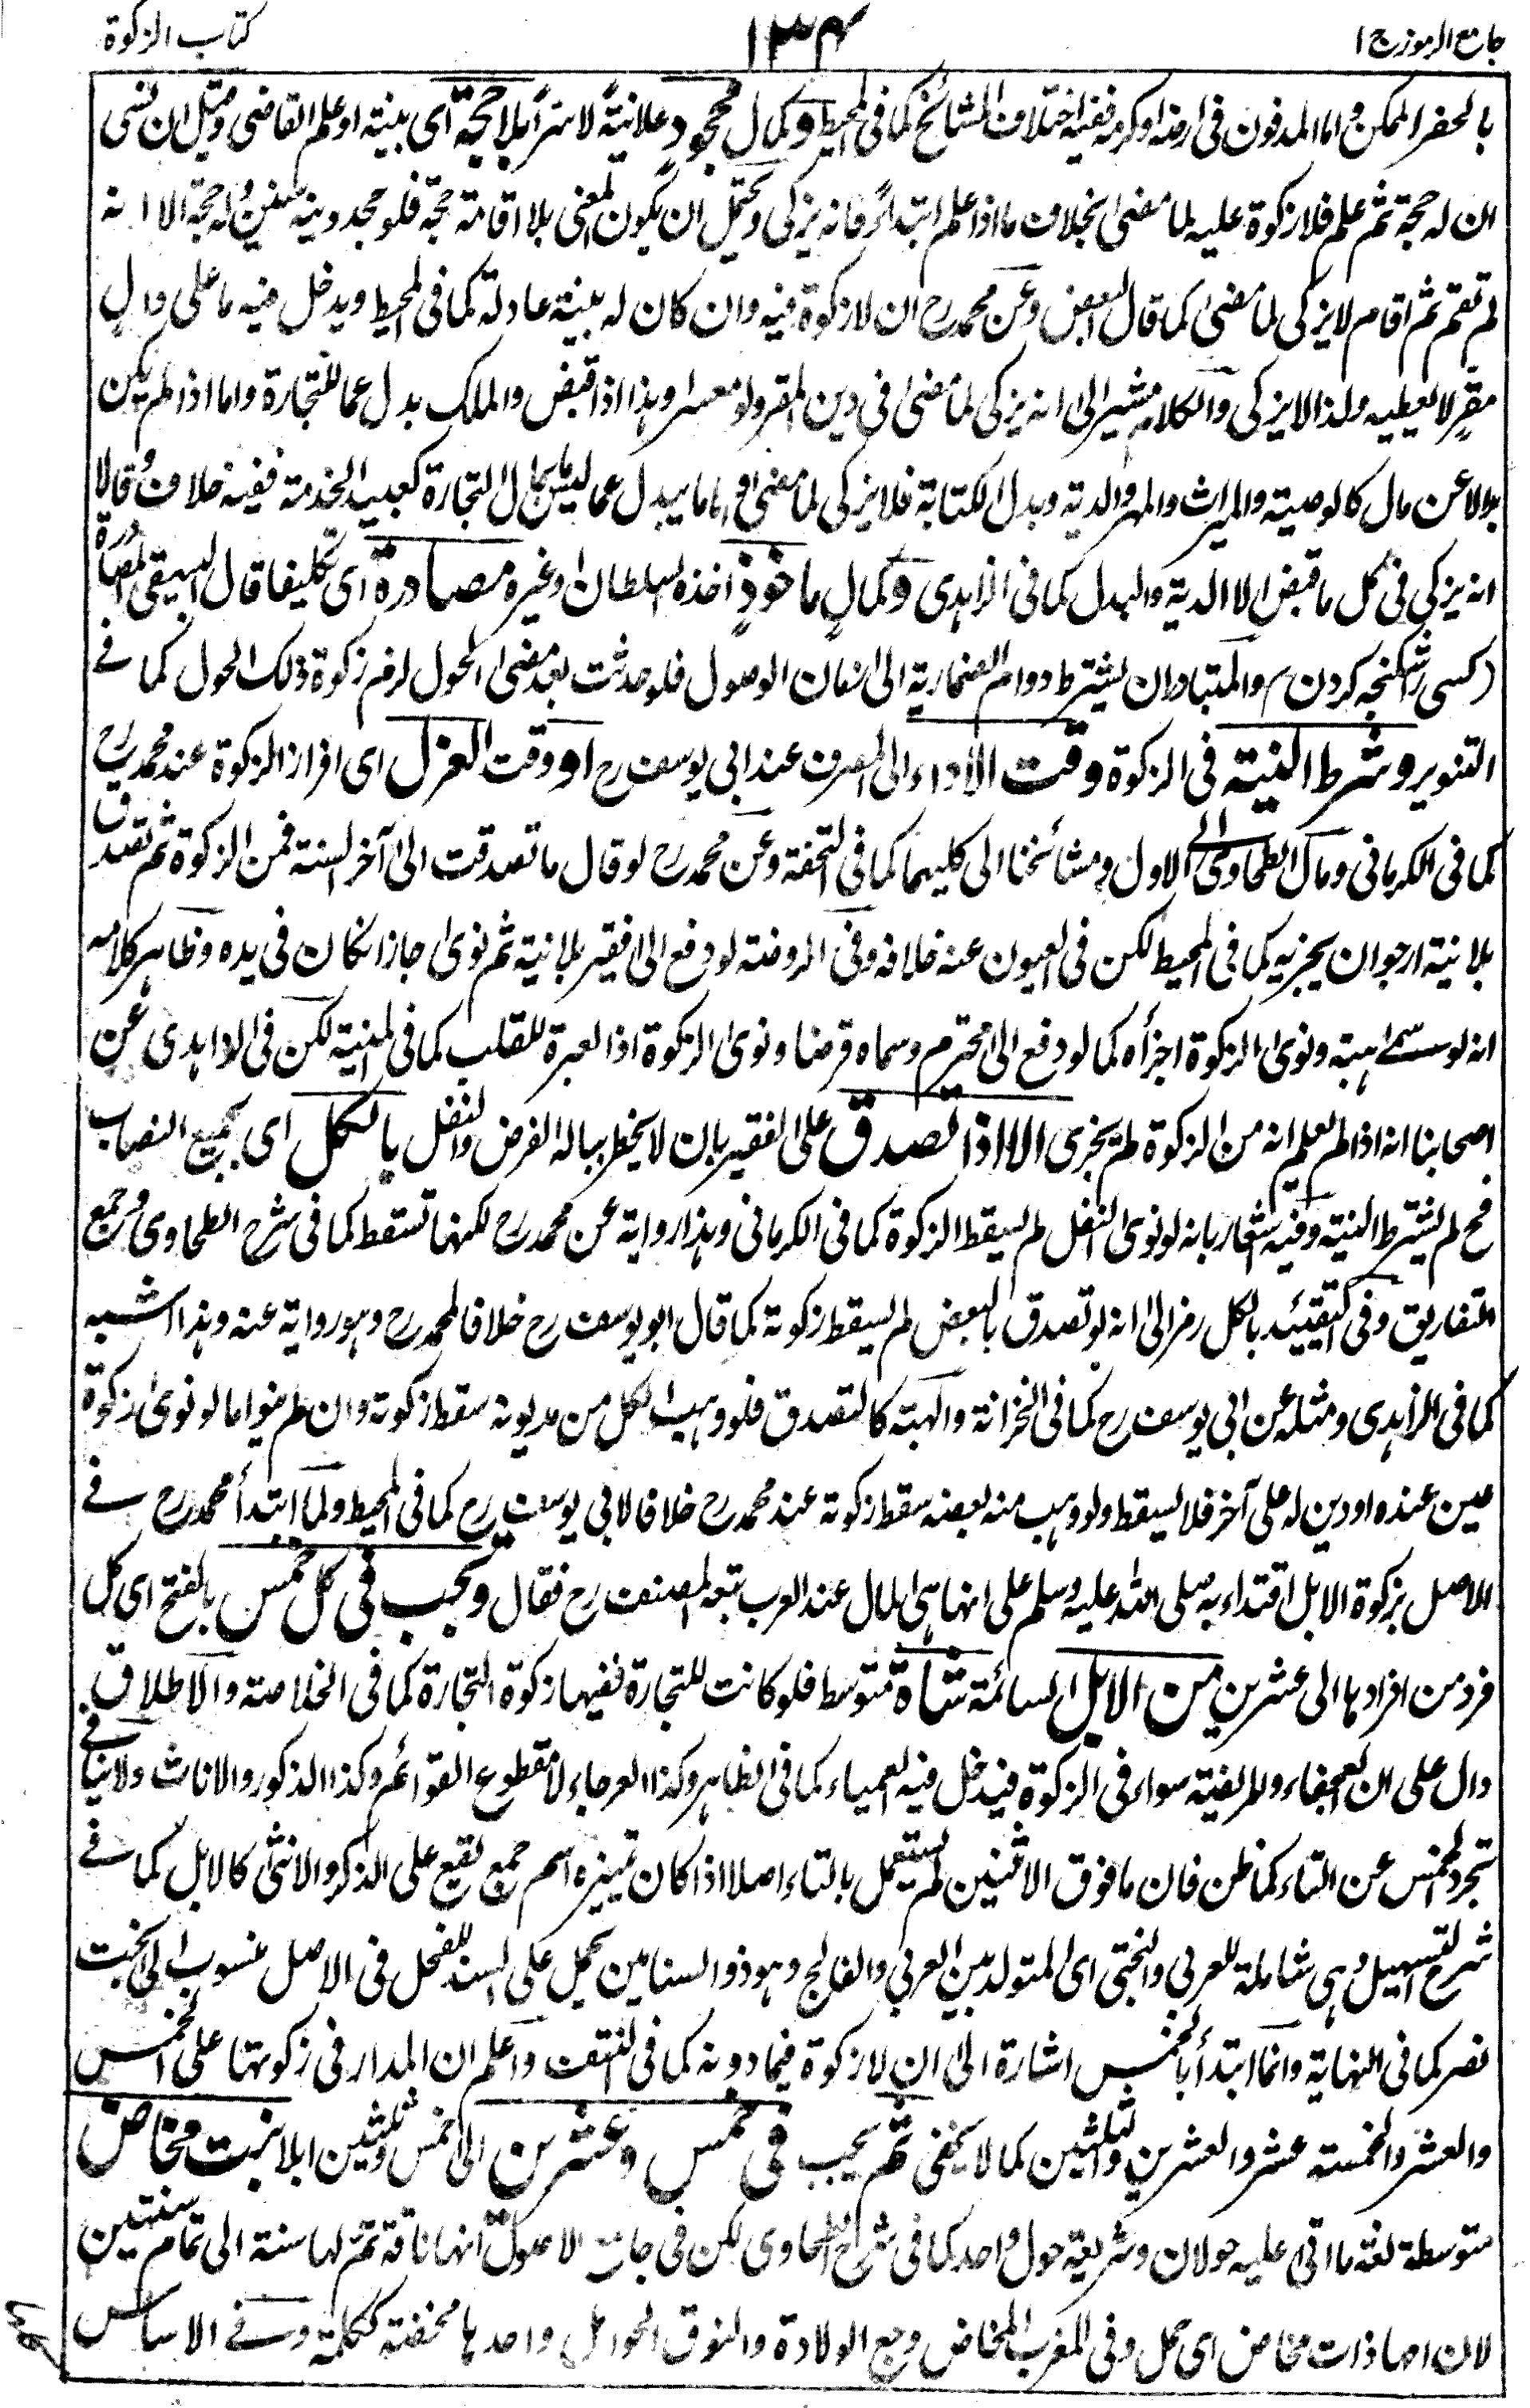 جامع الرموز ج ١
١٣٤
كتاب الزكوة
بالحفر الممكن و اما المدفون فى ارضه او كرمه ففيه اختلاف المشائخ كما فى المحيط وكمال مجحود علانيةً لا سرًّا بلا حجة اى بينة او علم القاضى وقيل ان نسى
ان له حجة ثم علم فلا زكوة عليه لما مضى بخلاف ما اذا علم ابتداءً فانه يزكى ويحتمل ان يكون المعنى بلا اقامة حجة فلو جحد دينه سنين وله حجة الا انه
لم تقم ثم اقام لا يزكى لما مضى كما قال البعض وعن محمد رح ان لا زكوة فيه وان كان له بينة عادلة كما فى المحيط ويدخل فيه ما على والٍ
مقرٍ لا يعطيه ولذا لا يزكى والكلام مشير الى انه يزكى لما مضى فى دين المقر ولو معسرا وهذا اذا قبض والملك بدل عما للتجارة واما اذا لم يكن
بدلا عن مال كالوصية والميراث والمهر والدية وبدل الكتابة فلا يزكى لما مضى واما ما يبدل عما ليس بمال التجارة كعبيد الخدمة ففيه خلاف وقالا
انه يزكى فى كل ما قبض الا الدية والبدل كما فى الزاهدى وكمالٍ ماخوذٍ اخذه السلطان او غيره مصادرة اى تكليفا قال البيهقى المصادرة
(كسى را شكنجه كردن) والمتبادر ان يشترط دوام الضمارية الى زمان الوصول فلو حدثت بعد مضى الحول لزم زكوة ذلك الحول كما فى
التنوير وشرط النية فى الزكوة وقت الاداء الى المصرف عند ابى يوسف رح او وقت العزل اى افراز الزكوة عند محمد رح
كما فى الكرمانى ومال الطحاوى الى الاول ومشائخنا الى كليهما كما فى التحفة وعن محمد رح لو قال ما تصدقت الى آخر السنة فمن الزكوة ثم تصدق
بلا نية ارجو ان يجزيه كما فى المحيط لكن فى العيون عنه خلافه وفى الروضة لو دفع الى فقير بلا نية ثم نوى جاز ان كان فى يده وظاهر كلامه
انه لو سمى هبة ونوى الزكوة اجزأه كما لو دفع الى محترم وسماه قرضا ونوى الزكوة اذ العبرة للقلب كما فى المنية لكن فى الزاهدى عن
اصحابنا انه اذا لم يعلم انه من الزكوة لم يجزى الا اذا تصدق على الفقير بان لا يخطر بباله الفرض والنفل بالكل اى بجميع النصاب
فح لم يشترط النية وفيه اشعار بانه لو نوى النفل لم يسقط الزكوة كما فى الكرمانى وهذا رواية عن محمد رح لكنها تسقط كما فى شرح الطحاوى وجمع
التفاريق وفى التقييد بالكل رمز الى انه لو تصدق بالبعض لم يسقط زكوته كما قال ابو يوسف رح خلافا لمحمد رح وهو رواية عنه وهذا اشبه
كما فى الزاهدى ومثله عن ابى يوسف رح كما فى الخزانة والهبة كالتصدق فلو وهب الكل من مديونه سقط زكوته وان لم ينو اما لو نوى زكوة
عين عنده او دين له على آخر فلا يسقط ولو وهب منه بعضه سقط زكوته عند محمد رح خلافا لابى يوسف رح كما فى المحيط ولما ابتدأ محمد رح فى
الاصل بزكوة الابل اقتداء به صلى الله عليه وسلم على انها هى المال عند العرب تبعه المصنف رح فقال ويجب فى كل خمس بالفتح اى كل
فرد من افرادها الى عشرين من الابل السائمة شاة متوسط فلو كانت للتجارة ففيها زكوة التجارة كما فى الخلاصة والاطلاق
دال على ان العجفاء والمريضة سواء فى الزكوة فيدخل فيه العمياء كما فى الظاهر وكذا العرجاء لا مقطوع القوائم وكذا الذكور والاناث ولا ينافى
تجرد الخمس عن التاء كما ظن فان ما فوق الاثنين لم يستعمل بالتاء اصلا اذا كان تميزه اسم جمع يقع على الذكر والانثى كالابل كما فى
شرح التسهيل وهى شاملة للعربى والبختى اى المتولد بين العربى والفالج وهو ذو السنامين يحمل على السند للفحل فى الاصل منسوب الى بخت
نصر كما فى النهاية وانما ابتدأ بالخمس اشارة الى ان لا زكوة فيما دونه كما فى النتف واعلم ان المدار فى زكوتها على الخمس
والعشر والخمسة عشر والعشرين والثلثين كما لا يخفى ثم يجب فى خمس وعشرين الى خمس وثلثين ابلا بنت مخاض
متوسطة لغة ما اتى عليه حولان وشريعة حول واحد كما فى شرح الطحاوى لكن فى جامع الاصول انها ناقة تم لها سنة الى تمام سنتين
لان امها ذات مخاض اى حمل وفى المغرب المخاض وجع الولادة والنوق الحوامل واحدها مخضة ككلمة وفى الاساس